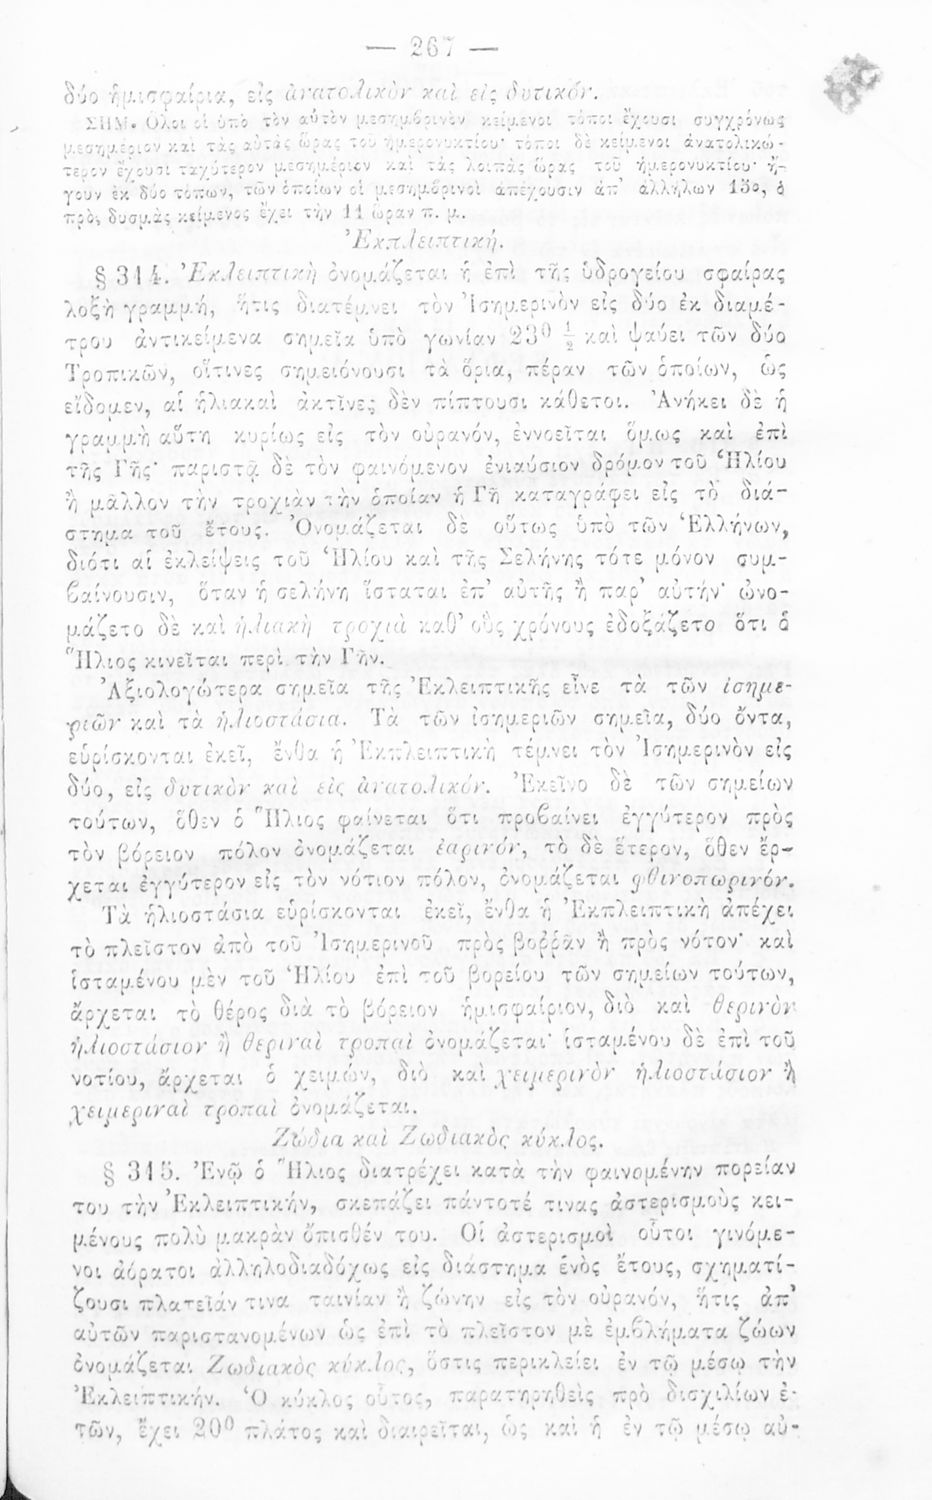 — 267 —
δύο ἡμισφαίρια, εἰς ἀνατολικὸν καὶ εἰς δυτικόν.
ΣΗΜ. Ὅλοι οἱ ὑπὸ τὸν αὐτὸν μεσημβρινὸν κείμενοι τόποι ἔχουσι συγχρόνως
μεσημέριον καὶ τὰς αὐτὰς ὥρας τοῦ ἡμερονυκτίου· τόποι δὲ κείμενοι ἀνατολικώ-
τερον ἔχουσι ταχύτερον μεσημέριον καὶ τὰς λοιπὰς ὥρας τοῦ ἡμερονυκτίου· ἤ-
γουν ἐκ δύο τόπων, τῶν ὁποίων οἱ μεσημβρινοὶ ἀπέχουσιν ἀπ' ἀλλήλων 15ο, ὁ
πρὸς δυσμὰς κείμενος ἔχει τὴν 11 ὥραν π. μ.
Ἐκπλειπτική.
§ 314. Ἐκλειπτικὴ ὀνομάζεται ἡ ἐπὶ τῆς ὑδρογείου σφαίρας
λοξὴ γραμμή, ἥτις διατέμνει τὸν Ἰσημερινὸν εἰς δύο ἐκ διαμέ-
τρου ἀντικείμενα σημεῖα ὑπὸ γωνίαν 23⁰ ½ καὶ ψαύει τῶν δύο
Τροπικῶν, οἵτινες σημειόνουσι τὰ ὅρια, πέραν τῶν ὁποίων, ὡς
εἴδομεν, αἱ ἡλιακαὶ ἀκτῖνες δὲν πίπτουσι κάθετοι. Ἀνήκει δὲ ἡ
γραμμὴ αὕτη κυρίως εἰς τὸν οὐρανόν, ἐννοεῖται ὅμως καὶ ἐπὶ
τῆς Γῆς· παριστᾷ δὲ τὸν φαινόμενον ἐνιαύσιον δρόμον τοῦ Ἡλίου
ἢ μᾶλλον τὴν τροχιὰν τὴν ὁποίαν ἡ Γῆ καταγράφει εἰς τὸ διά-
στημα τοῦ ἔτους. Ὀνομάζεται δὲ οὕτως ὑπὸ τῶν Ἑλλήνων,
διότι αἱ ἐκλείψεις τοῦ Ἡλίου καὶ τῆς Σελήνης τότε μόνον συμ-
βαίνουσιν, ὅταν ἡ σελήνη ἵσταται ἐπ' αὐτῆς ἢ παρ' αὐτήν· ὠνο-
μάζετο δὲ καὶ ἡλιακὴ τροχιὰ καθ' οὓς χρόνους ἐδοξάζετο ὅτι ὁ
Ἥλιος κινεῖται περὶ τὴν Γῆν.
Ἀξιολογώτερα σημεῖα τῆς Ἐκλειπτικῆς εἶνε τὰ τῶν ἰσημε-
ριῶν καὶ τὰ ἡλιοστάσια. Τὰ τῶν ἰσημεριῶν σημεῖα, δύο ὄντα,
εὑρίσκονται ἐκεῖ, ἔνθα ἡ Ἐκπλειπτικὴ τέμνει τὸν Ἰσημερινὸν εἰς
δύο, εἰς δυτικὸν καὶ εἰς ἀνατολικόν. Ἐκεῖνο δὲ τῶν σημείων
τούτων, ὅθεν ὁ Ἥλιος φαίνεται ὅτι προβαίνει ἐγγύτερον πρὸς
τὸν βόρειον πόλον ὀνομάζεται ἐαρινόν, τὸ δὲ ἕτερον, ὅθεν ἔρ-
χεται ἐγγύτερον εἰς τὸν νότιον πόλον, ὀνομάζεται φθινοπωρινόν.
Τὰ ἡλιοστάσια εὑρίσκονται ἐκεῖ, ἔνθα ἡ Ἐκπλειπτικὴ ἀπέχει
τὸ πλεῖστον ἀπὸ τοῦ Ἰσημερινοῦ πρὸς βοῤῥᾶν ἢ πρὸς νότον· καὶ
ἱσταμένου μὲν τοῦ Ἡλίου ἐπὶ τοῦ βορείου τῶν σημείων τούτων,
ἄρχεται τὸ θέρος διὰ τὸ βόρειον ἡμισφαίριον, διὸ καὶ θερινὸν
ἡλιοστάσιον ἢ θεριναὶ τροπαὶ ὀνομάζεται· ἱσταμένου δὲ ἐπὶ τοῦ
νοτίου, ἄρχεται ὁ χειμών, διὸ καὶ χειμερινὸν ἡλιοστάσιον ἢ
χειμεριναὶ τροπαὶ ὀνομάζεται.
Ζώδια καὶ Ζωδιακὸς κύκλος.
§ 315. Ἐνῷ ὁ Ἥλιος διατρέχει κατὰ τὴν φαινομένην πορείαν
του τὴν Ἐκλειπτικήν, σκεπάζει πάντοτέ τινας ἀστερισμοὺς κει-
μένους πολὺ μακρὰν ὄπισθέν του. Οἱ ἀστερισμοὶ οὗτοι γινόμε-
νοι ἀόρατοι ἀλληλοδιαδόχως εἰς διάστημα ἑνὸς ἔτους, σχηματί-
ζουσι πλατεῖάν τινα ταινίαν ἢ ζώνην εἰς τὸν οὐρανόν, ἥτις ἀπ'
αὐτῶν παριστανομένων ὡς ἐπὶ τὸ πλεῖστον μὲ ἐμβλήματα ζώων
ὀνομάζεται Ζωδιακὸς κύκλος, ὅστις περικλείει ἐν τῷ μέσῳ τὴν
Ἐκλειπτικήν. Ὁ κύκλος οὗτος, παρατηρηθεὶς πρὸ δισχιλίων ἐ-
τῶν, ἔχει 20⁰ πλάτος καὶ διαιρεῖται, ὡς καὶ ἡ ἐν τῷ μέσῳ αὐ-